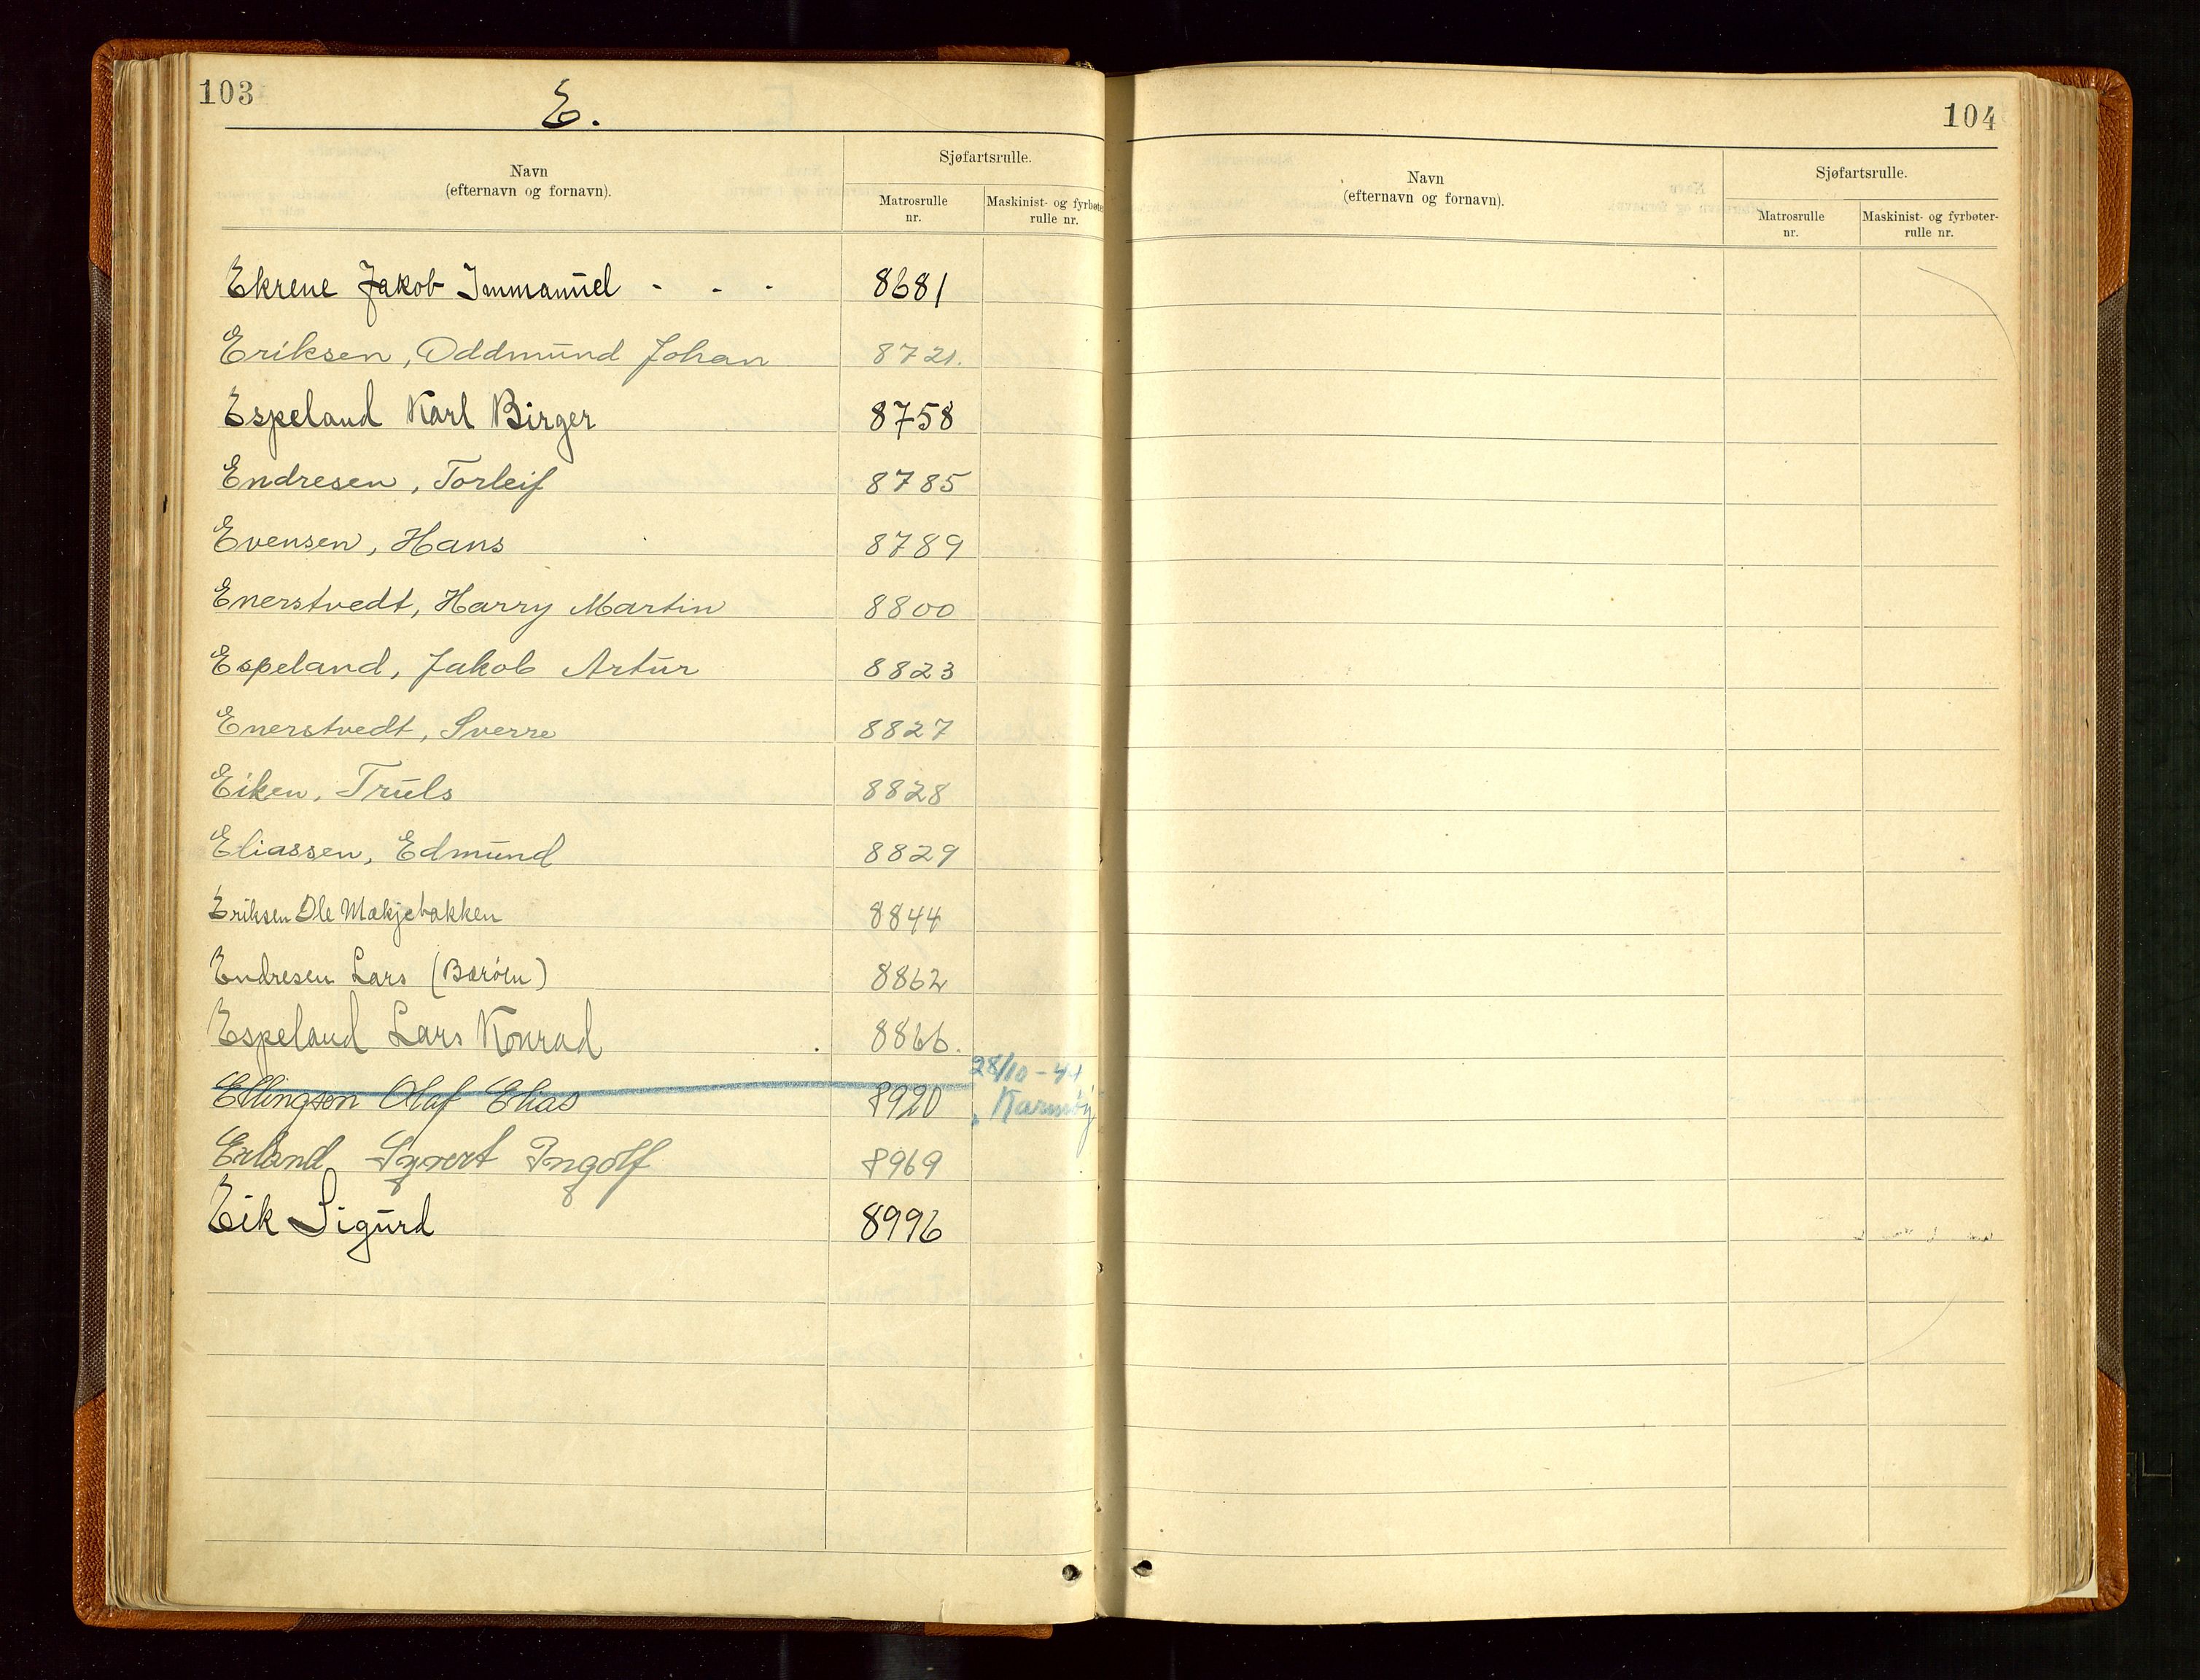 103
E.
Navn
(efternavn og fornavn).
Sjøfartsrulle.
Matrosrulle
nr.
Maskinist- og fyrbøter
rulle nr.
Ekrene Jakob Immanuel - - - 8681
Eriksen, Oddmund Johan 8721.
Espeland Karl Birger 8758
Endresen, Torleif 8785
Evensen, Hans 8789
Enerstvedt, Harry Martin 8800
Espeland, Jakob Artur 8823
Enerstvedt, Sverre 8827
Eiken, Truls 8828
Eliassen, Edmund 8829
Eriksen Ole Mækjebakken 8844
Endresen Lars (Bærøen) 8862
Espeland Lars Konrad 8866.
28/10-41
Ellingsen Olaf Elias 8920 Karmøy
Erland Syvert Ingolf 8969
Eik Sigurd 8996
104
Navn
(efternavn og fornavn).
Sjøfartsrulle.
Matrosrulle
nr.
Maskinist- og fyrbøter-
rulle nr.